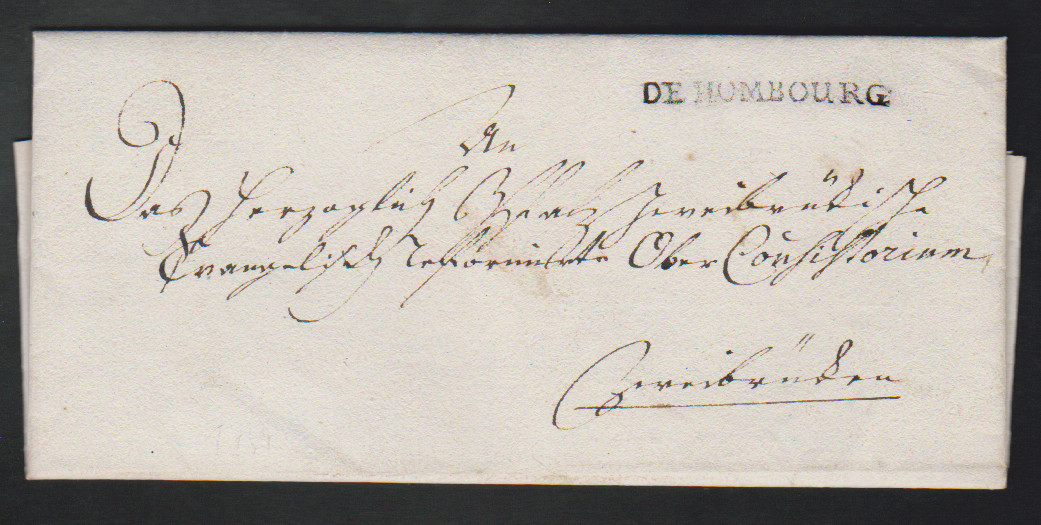 DE HOMBOURG
An
Das Herzoglich Pfalz Zweibrückische
Evangelisch Reformirte Ober Consistorium
Zweibrücken